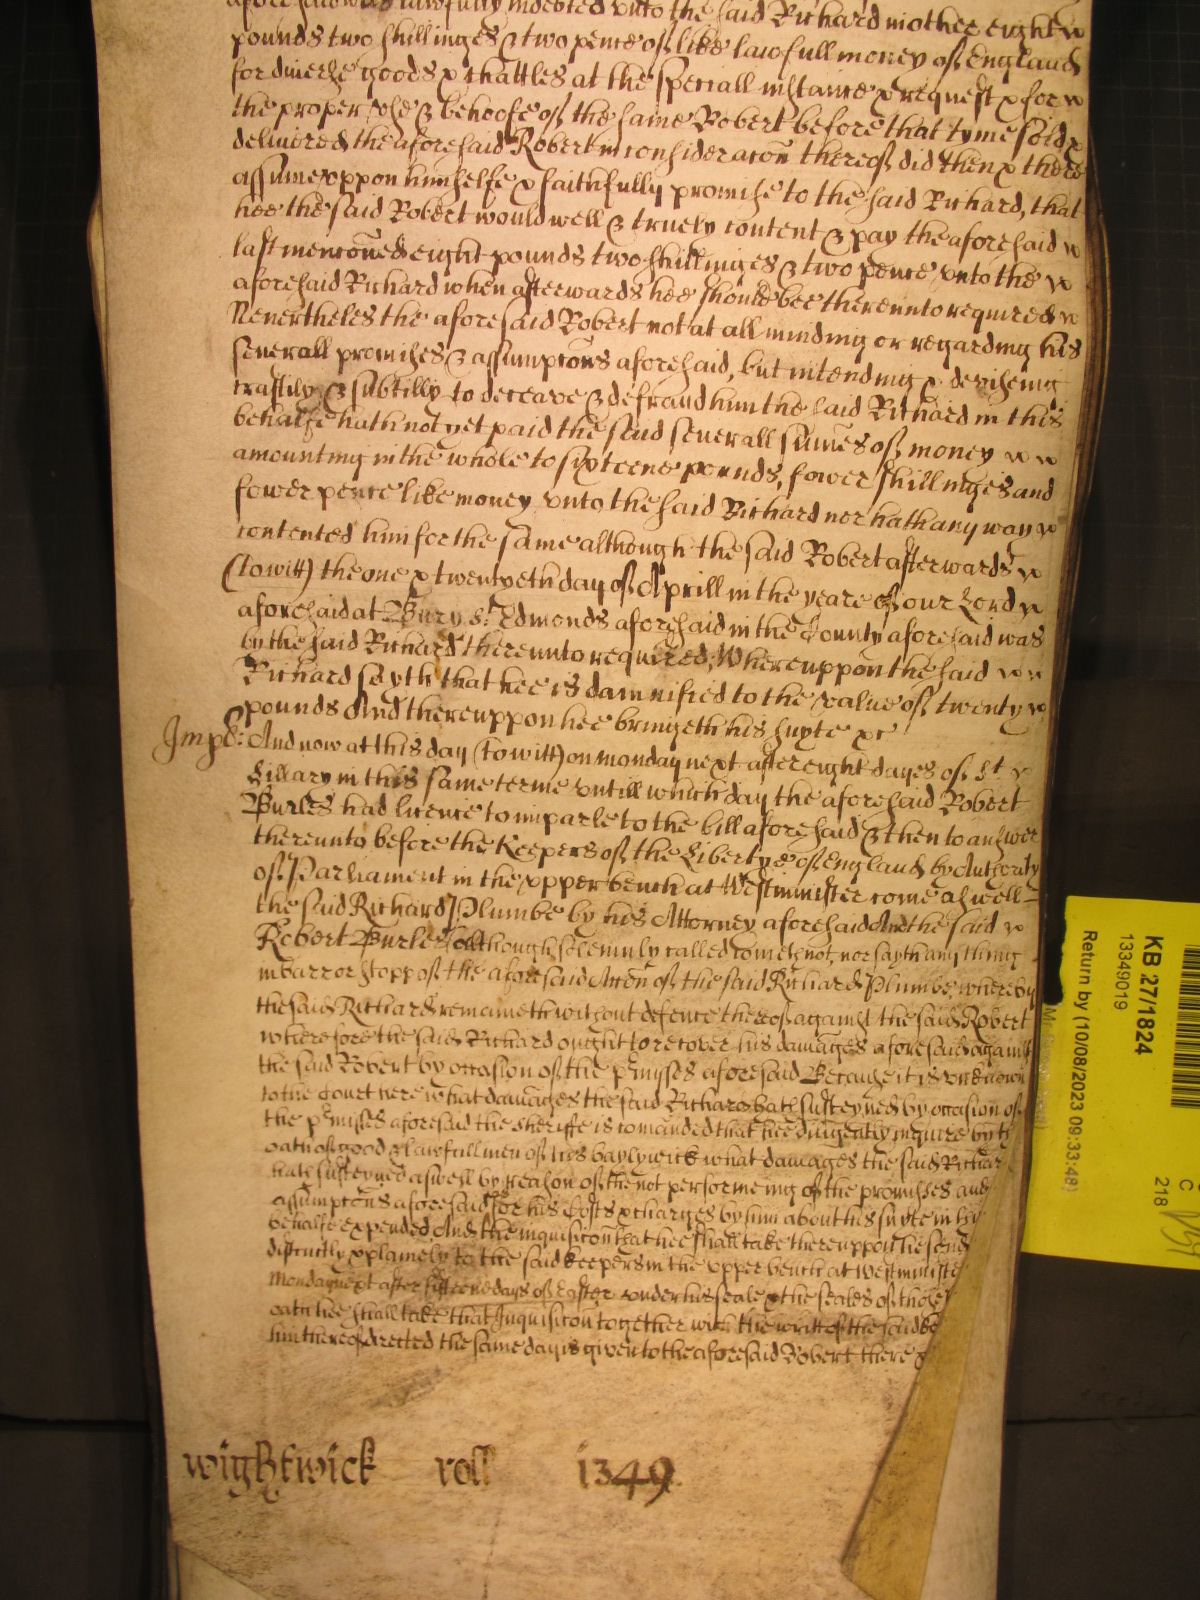 aforesaid was lawfully indebted unto the said Richard in other eight
pounds two shillinges & two pence of like lawfull money of England
for diverse goods & chattles at the speciall instance & request & for
the proper use & behoofe of the same Robert before that tyme sold &
delivered the aforesaid Robert in consideracon thereof did then & there
assume uppon himselfe & faithfully promise to the said Richard, that
hee the said Robert would well & truely content & pay the aforesaid
last menconed eight pounds two shillinges & two pence unto the
aforesaid Richard when afterwards hee should bee thereunto required
Nevertheles the aforesaid Robert not at all minding or regarding his
severall promises & assumpcons aforesaid, but intending & deviseing
craftily & subtilly to deceave & defraud him the said Richard in this
behalfe hath not yet paid the said severall sumes of money
amounting in the whole to sixteene pounds, fower shillinges and
fower pence like money unto the said Richard nor hath any way
contented him for the same although the said Robert afterwards
(to witt) the one & twentyeth day of Aprill in the yeare of our Lord
aforesaid at Bury St Edmonds aforesaid in the County aforesaid was
by the said Richard thereunto required, Whereuppon the said
Richard sayth that hee is damnified to the value of twenty
pounds And thereuppon hee bringeth his suyte &c
Imp<sup></sup>: And now at this day (to witt) on monday next after eight dayes of St
Hillary in this same terme untill which day the aforesaid Robert
Burles had licence to imparle to the bill aforesaid & then to answer
thereunto before the Keepers of the Libertye of England by Authority
of Parliament in the upper bench at Westminster come aswell
the said Richard Plumbe by his Attorney aforesaid And the said
Robert Burles although solemnly called cometh not, nor sayth any thing
in barr or stopp of the aforesaid Accon of the said Richard Plumbe, whereby
the said Richard remaineth without defence thereof against the said Robert
wherefore the said Richard ought to recover his damages aforesaid against
the said Robert by occasion of the pmisses aforesaid Because it is unknown
to the Court here what damages the said Richard hath susteyned by occasion of
the pmisses aforesaid the sheriffe is comanded that hee diligently inquire by th
oath of good & lawfull men of his baylywick what damages the said Richar
hath susteyned aswell by reason of the not performeing of the promisses and
assumpcons aforesaid as for his Costs & charges by him about his suyte in thi
behalfe expended And the inquisicon that hee shall take thereuppon hee send
distinctly & plainely to the said keepers in the upper bench at Westminste
Monday next after fifteene dayes of Easter under his seale & the seales of those
oath hee shall take that Inquisicon together with the writt of the said ke
him thereof directed the same day is given to the aforesaid Robert there &
wightwick roll 1349
KB 27/1824
13349019
Return by (10/08/2023 09:33:48)
C
218